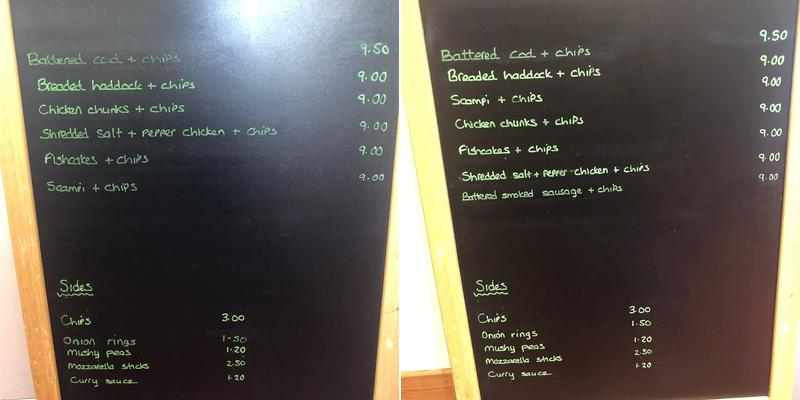 Battered cod + chips 9.50
Breaded haddock + chips 9.00
Chicken chunks + chips 9.00
Shredded salt + pepper chicken + chips 9.00
Fishcakes + chips 9.00
Scampi + chips 9.00
Sides
Chips 3.00
Onion rings 1.50
Mushy peas 1.20
Mozzarella sticks 2.50
Curry sauce 1.20
Battered cod + chips 9.50
Breaded haddock + chips 9.00
Scampi + chips 9.00
Chicken chunks + chips 9.00
Fishcakes + chips 9.00
Shredded salt + pepper chicken + chips 9.00
Battered smoked sausage + chips 9.00
Sides
Chips 3.00
Onion rings 1.50
Mushy peas 1.20
Mozzarella sticks 2.50
Curry sauce 1.20